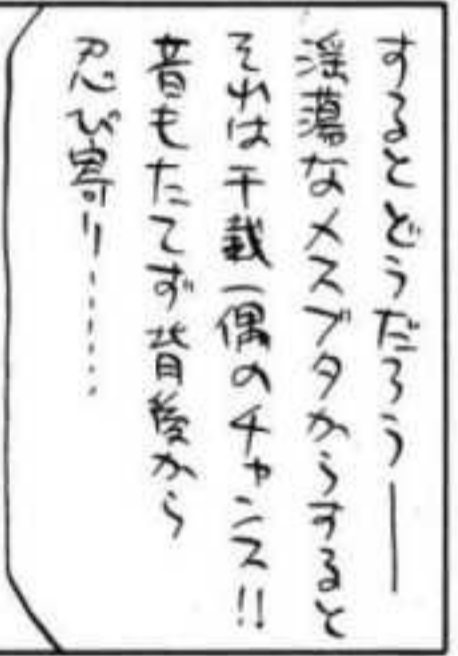 するとどうだろう――
淫蕩なメスブタからすると
それは千載一偶のチャンス!!
音もたてず背後から
忍び寄り………